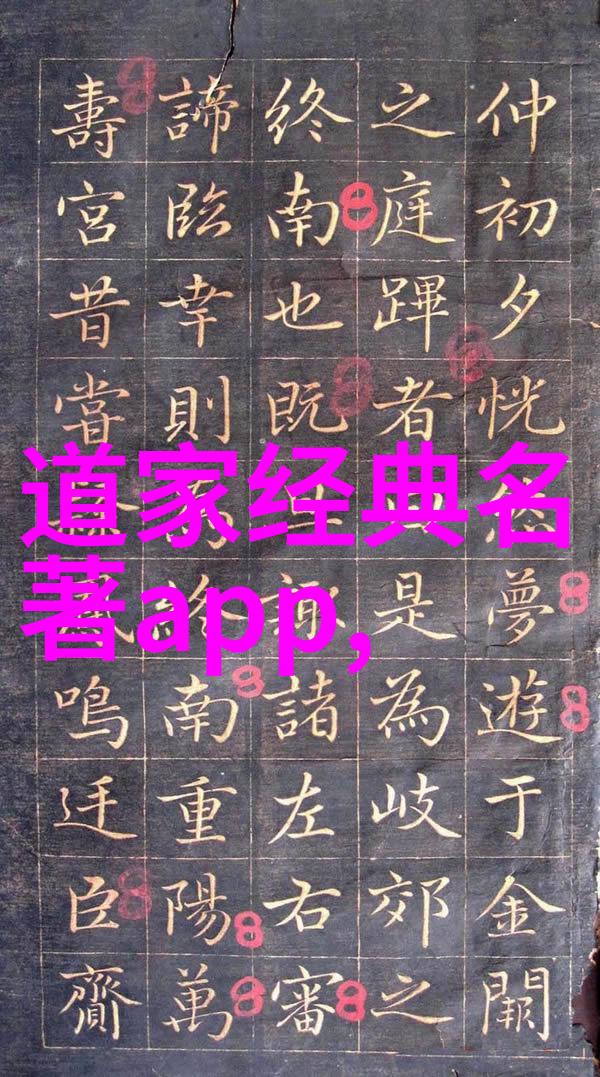 仲初夕恍然夢遊于金闕
之庭蹕者是為岐郊之
終南也既諏諸左右審
諦臨幸則終南重陽萬
壽宮昔嘗鳴廷臣齎
道家经典名
著app,